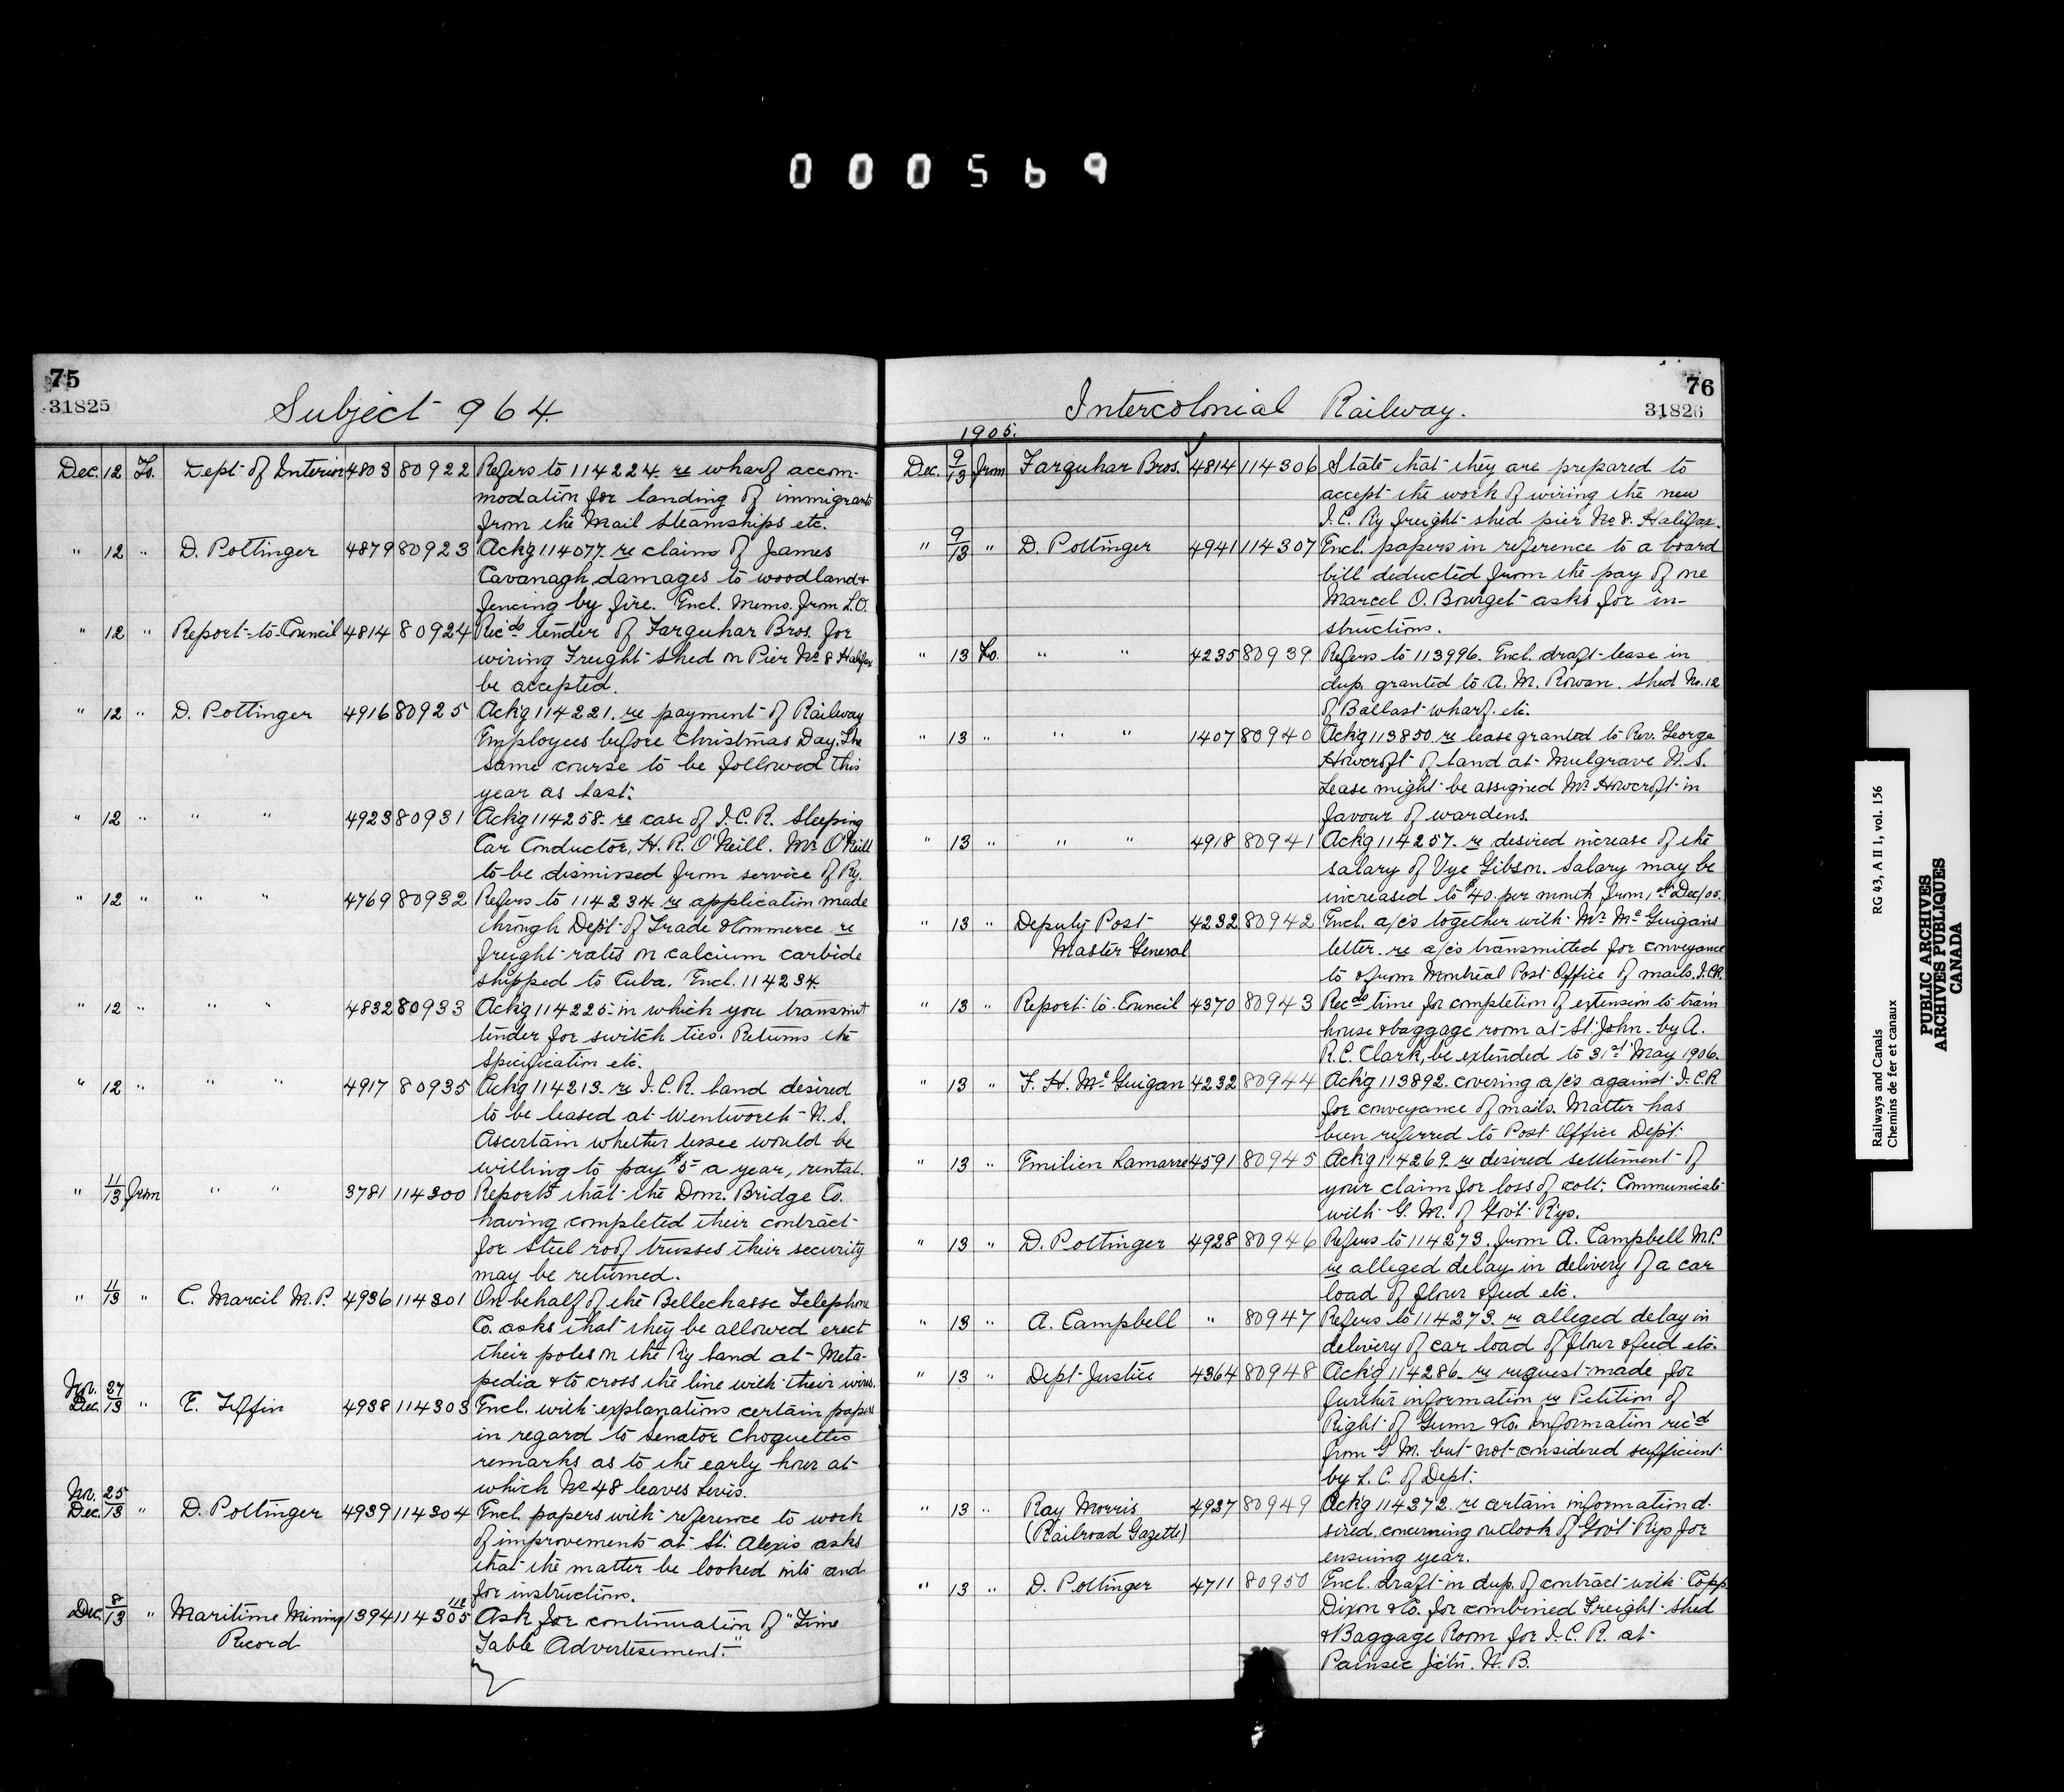 000569
75
31825
Subject 964.
Dec. 12 To. Dept. of Interior 4803 80922 Refers to 114224 re wharf accom-
modation for landing of immigrants
from the Mail Steamships etc.
" 12 " D. Pottinger 4879 80923 Ackg 114077 re claim of James
Cavanagh, damages to woodland &
fencing by fire. Encl. Memo. from L.O.
" 12 " Report-to-Council 4814 80924 Recds tender of Farquhar Bros. for
wiring Freight shed on Pier No 8 Halifax
be accepted.
" 12 " D. Pottinger 4916 80925 Ackg 114221. re payment of Railway
Employees before Christmas Day. The
same course to be followed this
year as last.
" 12 " " " 4923 80931 Ackg 114258 re case of I.C.R. Sleeping
Car Conductor, H. R. O'Neill. Mr O'Neill
to be dismissed from service of Ry.
" 12 " " " 4769 80932 Refers to 114234 re application made
through Dept. of Trade & Commerce re
freight rates on calcium carbide
shipped to Cuba. Encl. 114234.
" 12 " " " 4832 80933 Ackg 114225 in which you transmit
tender for switch ties. Returns the
specification etc.
" 12 " " " 4917 80935 Ackg 114213 re I.C.R. land desired
to be leased at Wentworth N.S.
Ascertain whether lessee would be
willing to pay $5 a year, rental.
" 11/13 from " " 3781 114300 Reports that the Dom. Bridge Co.
having completed their contract
for steel roof trusses their security
may be returned.
" 11/13 " C. Marcil M.P. 4936 114301 On behalf of the Bellechasse Telephone
Co. asks that they be allowed erect
their poles on the Ry land at Meta-
pedia & to cross the line with their wires.
Nov. 27
Dec. 13 " E. Tiffin 4938 114303 Encl. with explanations certain papers
in regard to Senator Choquettes
remarks as to the early hour at
which No 48 leaves Levis.
Nov. 25
Dec. 13 " D. Pottinger 4939 114304 Encl. papers with reference to work
of improvements at St. Alexis asks
that the matter be looked into and
for instructions.
Dec. 8/13 " Maritime Mining 1394 114305 Ask for continuation of "Time
Record Table Advertisement."
76
31826
Intercolonial Railway.
1905.
Dec. 9/13 from Farquhar Bros. 4814 114306 State that they are prepared to
accept the work of wiring the new
I.C. Ry freight shed pier No 8. Halifax.
" 9/13 " D. Pottinger 4941 114307 Encl. papers in reference to a board
bill deducted from the pay of one
Marcel O. Bourget asks for in-
structions.
" 13 To. " " 4235 80939 Refers to 113996. Encl. draft lease in
dup. granted to A. M. Rowan. Shed No. 12
of Ballast wharf. etc.
" 13 " " " 1407 80940 Ackg 113850 re lease granted to Rev. George
Howcroft of land at Mulgrave N.S.
Lease might be assigned Mr Howcroft in
favour of wardens.
" 13 " " " 4918 80941 Ackg 114257. re desired increase of the
salary of Vye Gibson. Salary may be
increased to $40. per month from 1st Dec/05.
" 13 " Deputy Post 4232 80942 Encl. a/cs together with Mr McGuigans
Master General letter. re a/cs transmitted for conveyance
to & from Montreal Post Office of mails. I.C.R.
" 13 " Report to Council 4370 80943 Recds time for completion of extension to train
house & baggage room at St. John by A.
R.C. Clark, be extended to 31st May 1906.
" 13 " F. H. McGuigan 4232 80944 Ackg 113892. covering a/cs against I.C.R
for conveyance of mails. Matter has
been referred to Post Office Dept.
" 13 " Emilien Lamarre 4591 80945 Ackg 114269 re desired settlement of
your claim for loss of colt. Communicate
with G. M. of Govt Rys.
" 13 " D. Pottinger 4928 80946 Refers to 114273. from A. Campbell M.P.
re alleged delay in delivery of a car
load of flour & feed etc.
" 13 " A. Campbell " 80947 Refers to 114273. re alleged delay in
delivery of car load of flour & feed etc.
" 13 " Dept. Justice 4364 80948 Ackg 114286 re request made for
further information re Petition of
Right of Gunn & Co. Information rec'd
from G M. but not considered sufficient
by L. C. of Dept.
" 13 " Ray Morris 4937 80949 Ackg 114372. re certain information d-
(Railroad Gazette) sired, concerning outlook of Govt Rys for
ensuing year.
" 13 " D. Pottinger 4711 80950 Encl. draft in dup. of contract with Copp
Dixon & Co. for combined Freight shed
& Baggage Room for I. C. R. at
Painsec Jctn. N. B.
Railways and Canals RG 43, A II 1, vol. 156
Chemins de fer et canaux
PUBLIC ARCHIVES
ARCHIVES PUBLIQUES
CANADA